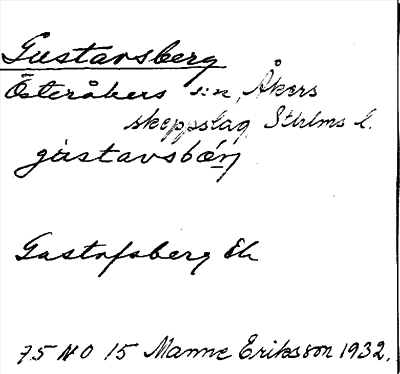 Gustavsberg
Österåkers s:n, Åkers
skeppslag Sthlms l.
gustavsbǽrj
Gustafsberg Ek
75 NO 15 Manne Eriksson 1932.